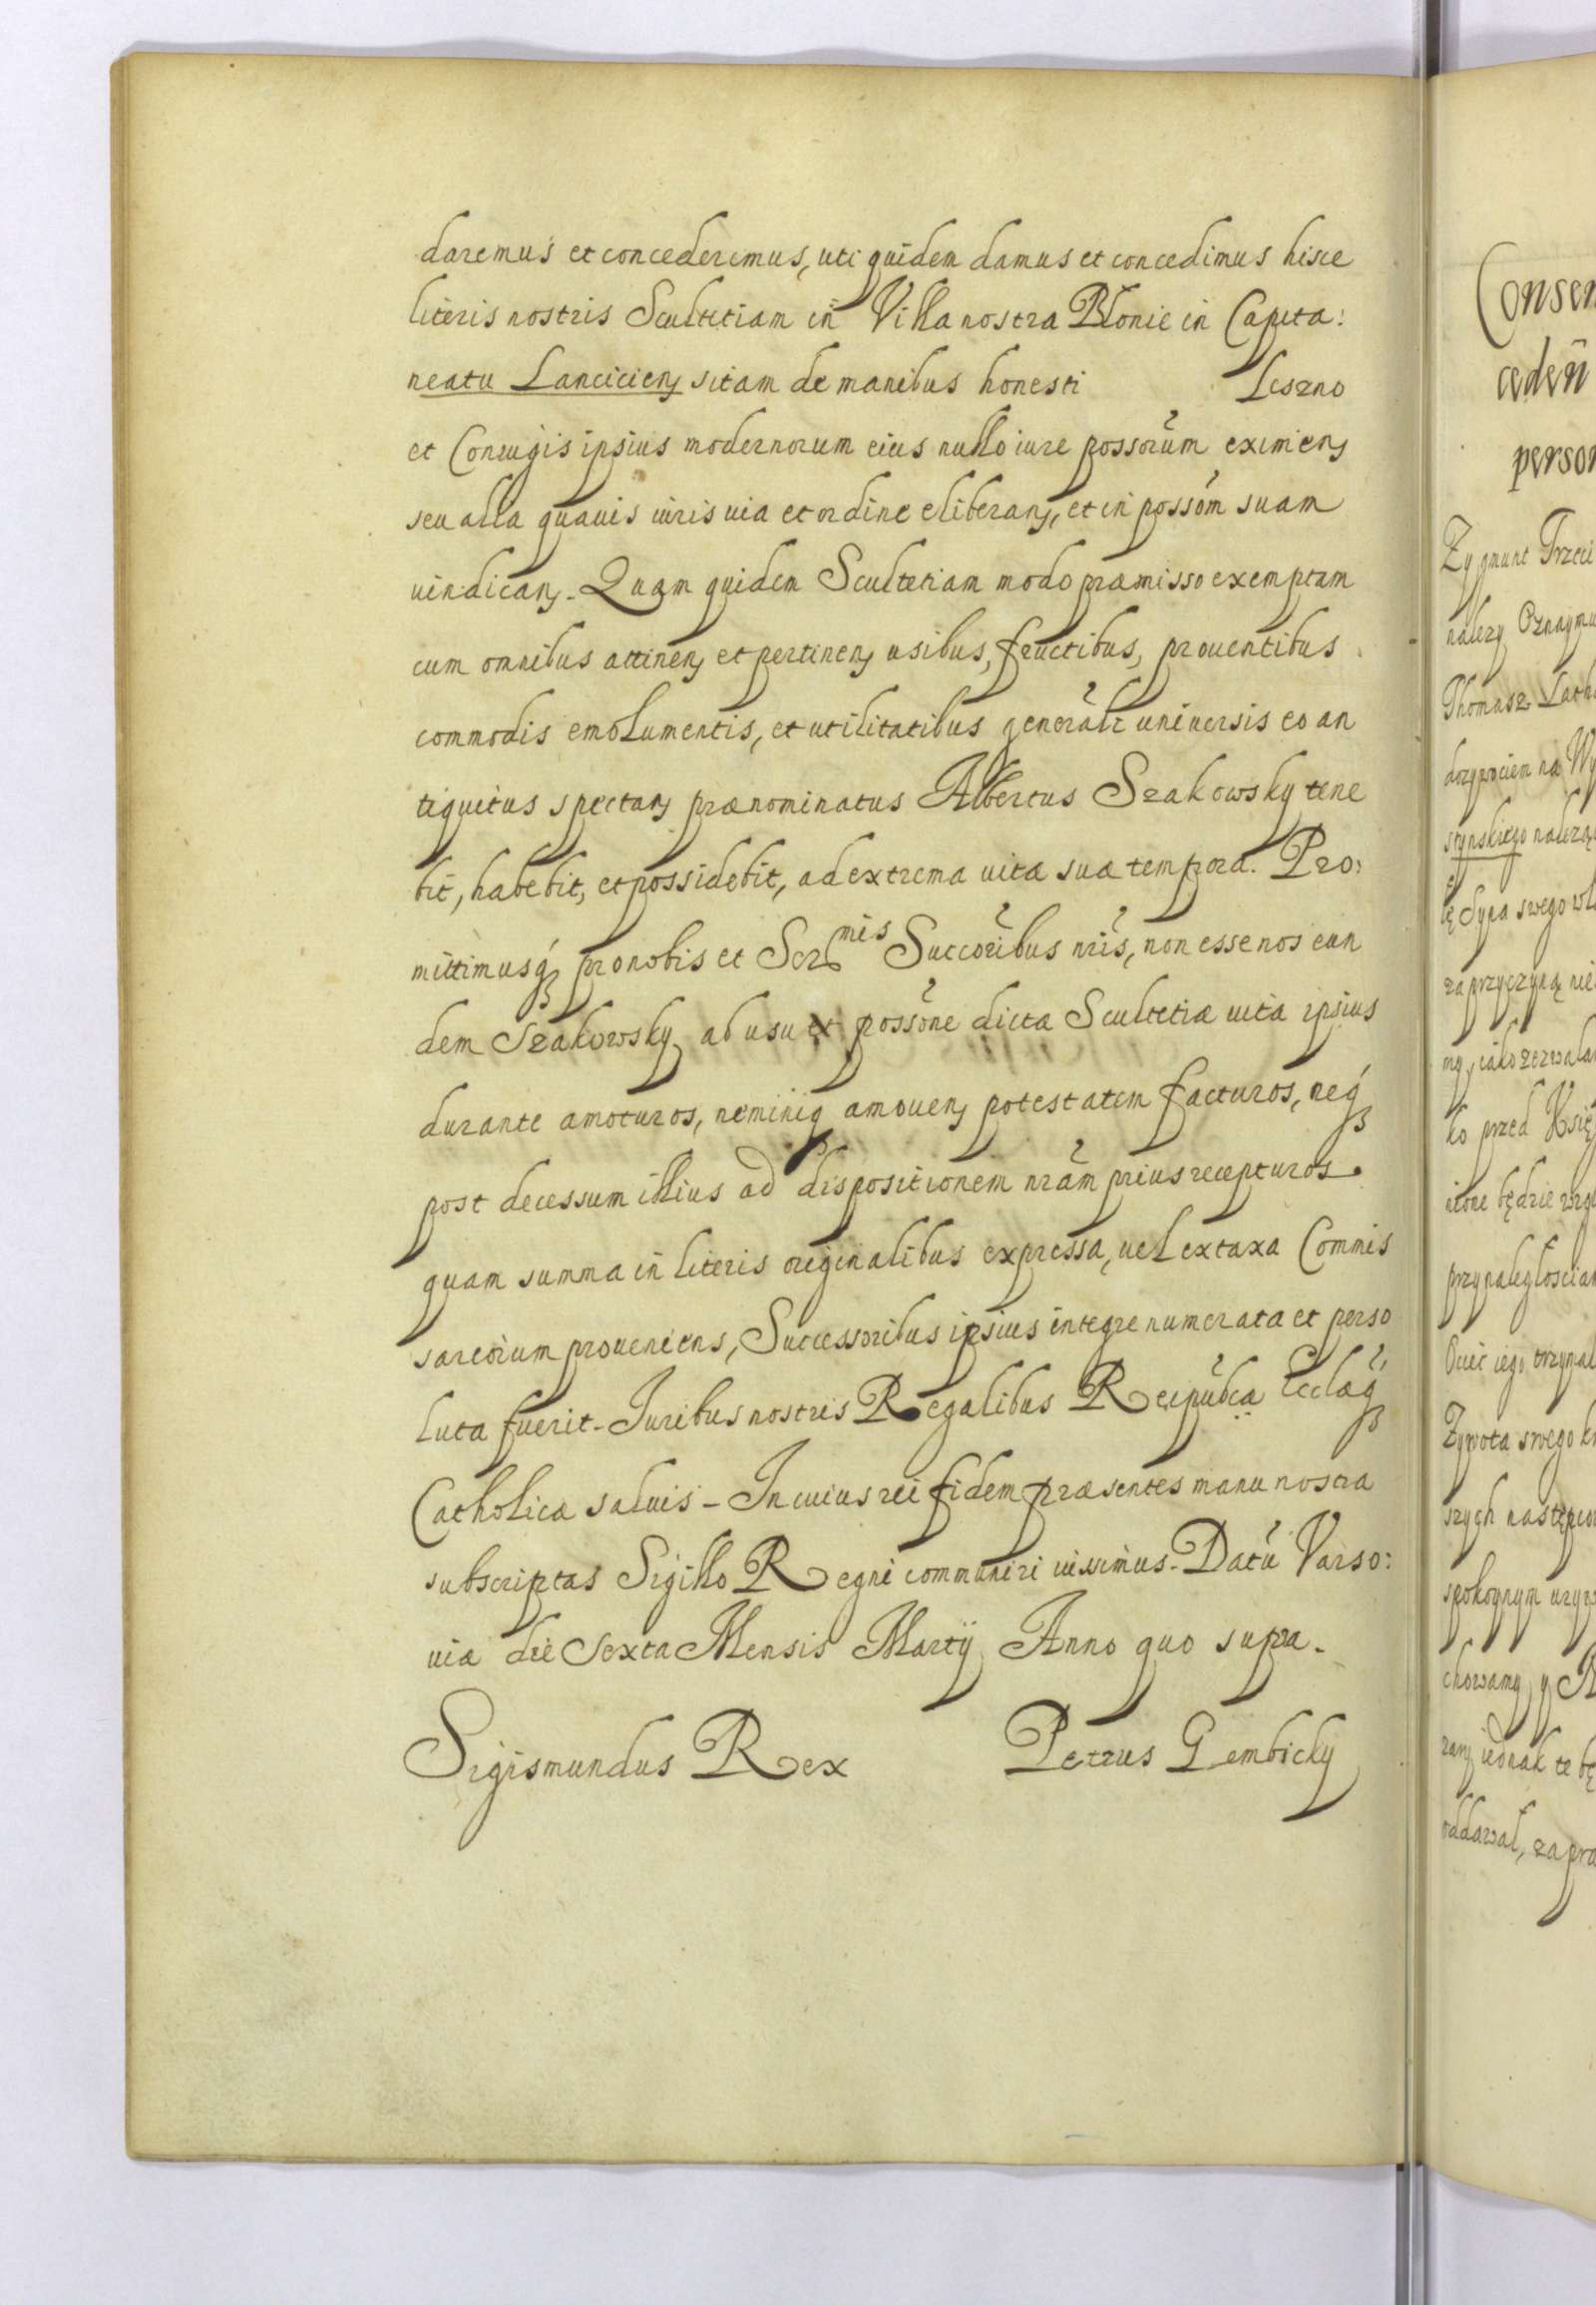 daremus et concederemus, uti quidem damus et concedimus hisce
literis nostris Scultetiam in Villa nostra Blonie in Capita:
neatu Lanciciens sitam de manibus honesti Leszno
et Coniugis ipsius modernorum eius nullo iure possorum eximens
seu alia quavis iuris via et ordine eliberans, et in possom suam
vindicans. Quam quidem Scultetiam modo præmisso exemptam
cum omnibus attinens et pertinens usibus, fructibus, proventibus
commodis emolumentis, et utilitatibus generalr universis eo an
tiquitus spectans prænominatus Albertus Szakowsky tene
bit, habebit, et possidebit, ad extrema vitæ suæ tempora. Pro:
mittimusq pro nobis et Sermis Succoribus nris, non esse nos eun
dem Szakowsky ab usu et possone dictæ Scultetiæ vita ipsius
durante amoturos, neminiq amovens potestatem facturos, neq
post decessum illius ad dispositionem nram prius recepturos.
quam summa in literis originalibus expressa, vel ex taxa Commis
sariorum proveniens, Successoribus ipsius integre numerata et perso
luta fuerit. Iuribus nostris Regalibus Reipubcæ Ecclæq
Catholicæ salvis. In cuius rei fidem præsentes manu nostra
subscriptas Sigillo Regni communiri iussimus. Datu Varso:
viæ die Sexta Mensis Martij Anno quo supra.
Sigismundus Rex Petrus Gembicky
Consen
ceden
person
Zygmunt Trzeci
nalezy Oznaymu
Thomasz
dozywociem na
stynskiego nalezą
Syna swego
za przyczyną nie
my, iako zezwala
ko przed Xsię
nione będzie
przynaleglosciam
Ociec iego trzymal
Zywota swego
szych nastempcow
spokoynym
chowamy, y
iednak te bę
oddawał, za pra